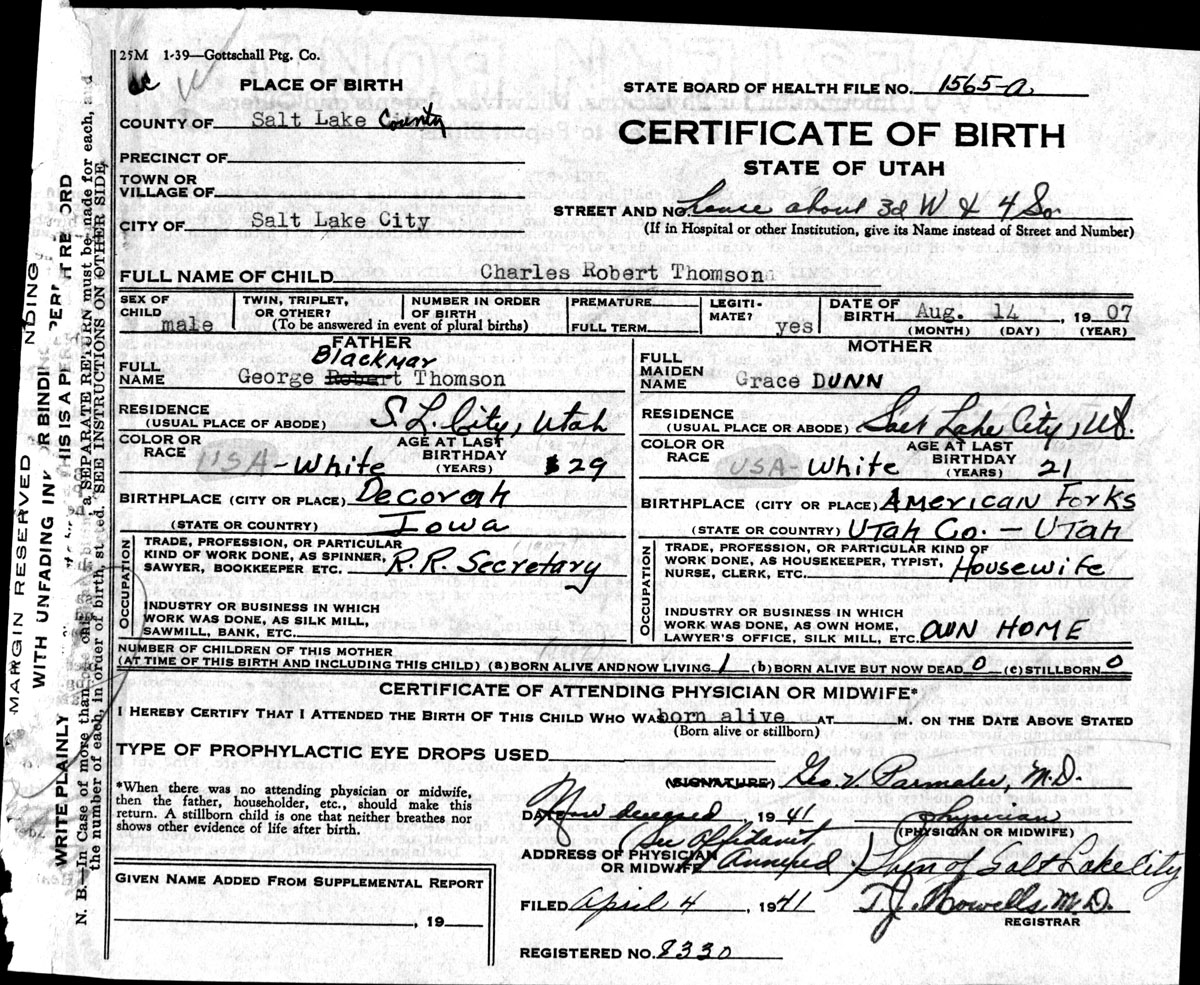 25M 1-39—Gottschall Ptg. Co.
PLACE OF BIRTH
COUNTY OF Salt Lake County
PRECINCT OF
TOWN OR
VILLAGE OF
CITY OF Salt Lake City
STATE BOARD OF HEALTH FILE NO. 1565-a
CERTIFICATE OF BIRTH
STATE OF UTAH
STREET AND NO. house about 3d W & 4 So
(If in Hospital or other Institution, give its Name instead of Street and Number)
FULL NAME OF CHILD Charles Robert Thomson
SEX OF
CHILD male
TWIN, TRIPLET,
OR OTHER?
NUMBER IN ORDER
OF BIRTH
(To be answered in event of plural births)
PREMATURE
FULL TERM
LEGITI-
MATE? yes
DATE OF
BIRTH Aug. 14, 1907
(MONTH) (DAY) (YEAR)
FATHER
Blackmar
FULL
NAME George Robert Thomson
RESIDENCE
(USUAL PLACE OF ABODE) S. L. City, Utah
COLOR OR
RACE USA-White
AGE AT LAST
BIRTHDAY
(YEARS) 29
BIRTHPLACE (CITY OR PLACE) Decorah
(STATE OR COUNTRY) Iowa
OCCUPATION
TRADE, PROFESSION, OR PARTICULAR
KIND OF WORK DONE, AS SPINNER,
SAWYER, BOOKKEEPER ETC. R.R. Secretary
INDUSTRY OR BUSINESS IN WHICH
WORK WAS DONE, AS SILK MILL,
SAWMILL, BANK, ETC.
MOTHER
FULL
MAIDEN
NAME Grace DUNN
RESIDENCE
(USUAL PLACE OR ABODE) Salt Lake City, Ut.
COLOR OR
RACE USA-White
AGE AT LAST
BIRTHDAY
(YEARS) 21
BIRTHPLACE (CITY OR PLACE) American Forks
(STATE OR COUNTRY) Utah Co. - Utah
OCCUPATION
TRADE, PROFESSION, OR PARTICULAR KIND OF
WORK DONE, AS HOUSEKEEPER, TYPIST,
NURSE, CLERK, ETC. Housewife
INDUSTRY OR BUSINESS IN WHICH
WORK WAS DONE, AS OWN HOME,
LAWYER'S OFFICE, SILK MILL, ETC. OWN HOME
NUMBER OF CHILDREN OF THIS MOTHER
(AT TIME OF THIS BIRTH AND INCLUDING THIS CHILD) (a) BORN ALIVE AND NOW LIVING 1 (b) BORN ALIVE BUT NOW DEAD 0 (c) STILLBORN 0
CERTIFICATE OF ATTENDING PHYSICIAN OR MIDWIFE*
I HEREBY CERTIFY THAT I ATTENDED THE BIRTH OF THIS CHILD WHO WAS born alive AT M. ON THE DATE ABOVE STATED
(Born alive or stillborn)
TYPE OF PROPHYLACTIC EYE DROPS USED
*When there was no attending physician or midwife,
then the father, householder, etc., should make this
return. A stillborn child is one that neither breathes nor
shows other evidence of life after birth.
(SIGNATURE) Geo. V. Parmalee, M.D.
DATE Now deceased 1941 physician
(PHYSICIAN OR MIDWIFE)
See Affidavit
ADDRESS OF PHYSICIAN
OR MIDWIFE Annexed) of Salt Lake City
GIVEN NAME ADDED FROM SUPPLEMENTAL REPORT
, 19
FILED April 4, 1941 T. J. Howells, M.D.
REGISTRAR
REGISTERED NO. 8330
MARGIN RESERVED NDING
WRITE PLAINLY WITH UNFADING INK OR BINDING THIS IS A PER
N. B.—In Case of more than one child a SEPARATE RETURN must be made for each, and
the number of each, in order of birth, stated. SEE INSTRUCTIONS ON OTHER SIDE.